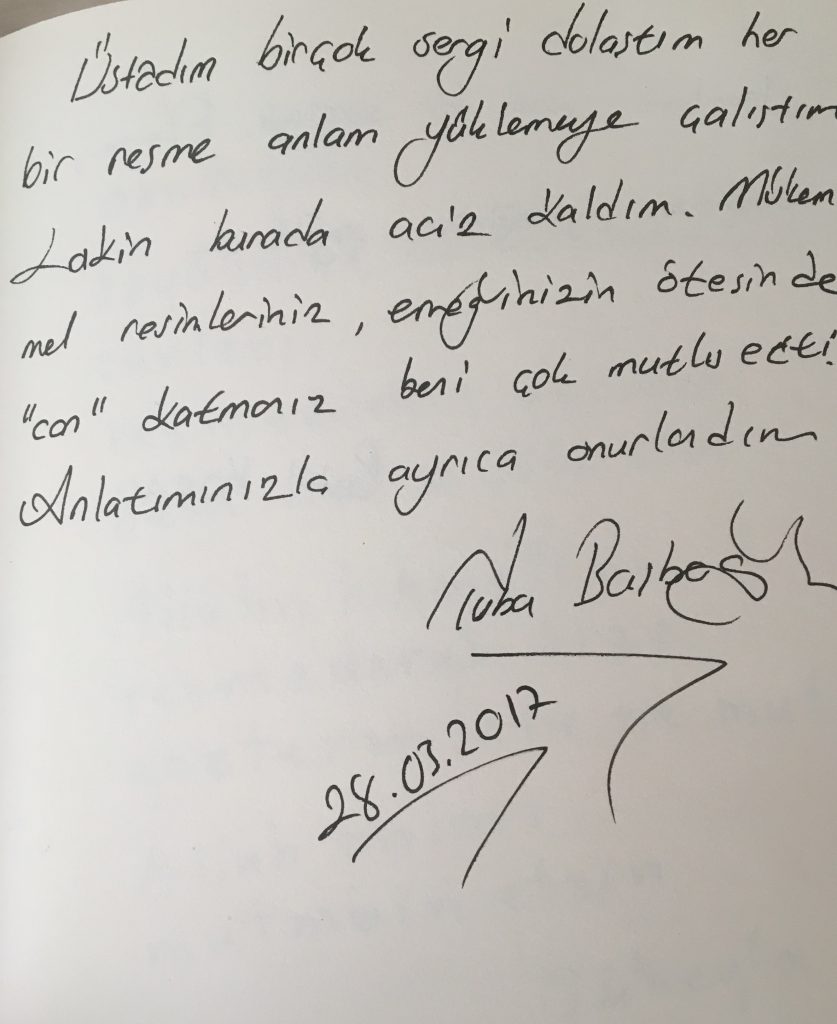 Üstadım birçok sergi dolaştım her
bir resme anlam yüklemeye çalıştım
Lakin burada aci'z kaldım. Mükem
mel resimleriniz, emeğinizin ötesinde
"can" katmanız beni çok mutlu etti.
Anlatımınızla ayrıca onurlandım
Tuba
28.03.2017